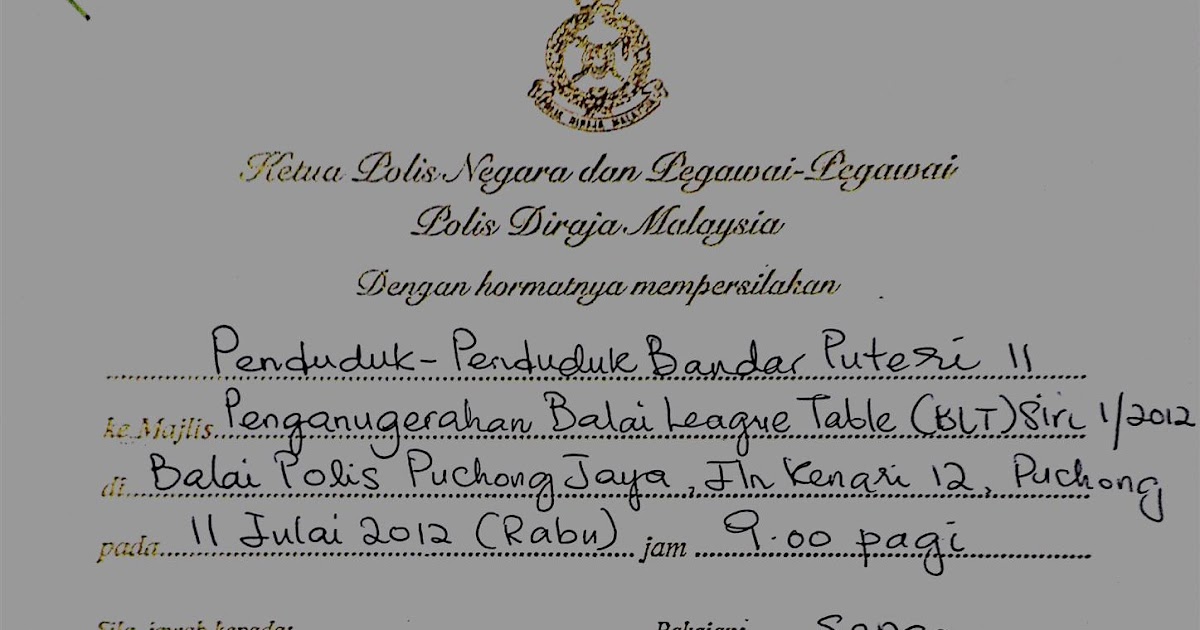 POLIS DIRAJA MALAYSIA
Ketua Polis Negara dan Pegawai-Pegawai
Polis Diraja Malaysia
Dengan hormatnya mempersilakan
Penduduk-Penduduk Bandar Puteri 11
ke Majlis Penganugerahan Balai League Table (BLT) Siri 1/2012
di Balai Polis Puchong Jaya, Jln Kenari 12, Puchong
pada 11 Julai 2012 (Rabu) jam 9.00 pagi